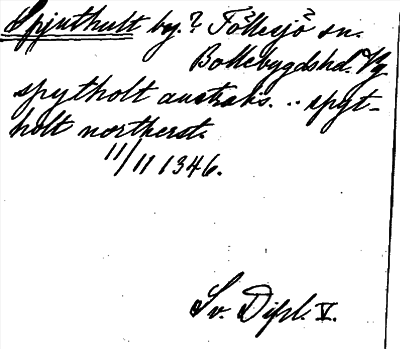 Spjuthult by.? Töllesjö sn.
Bollebygds hd. Vg
spytholt austraks. .. spyt-
holt northerst.
11/11 1346.
Sv. Dipl. V.